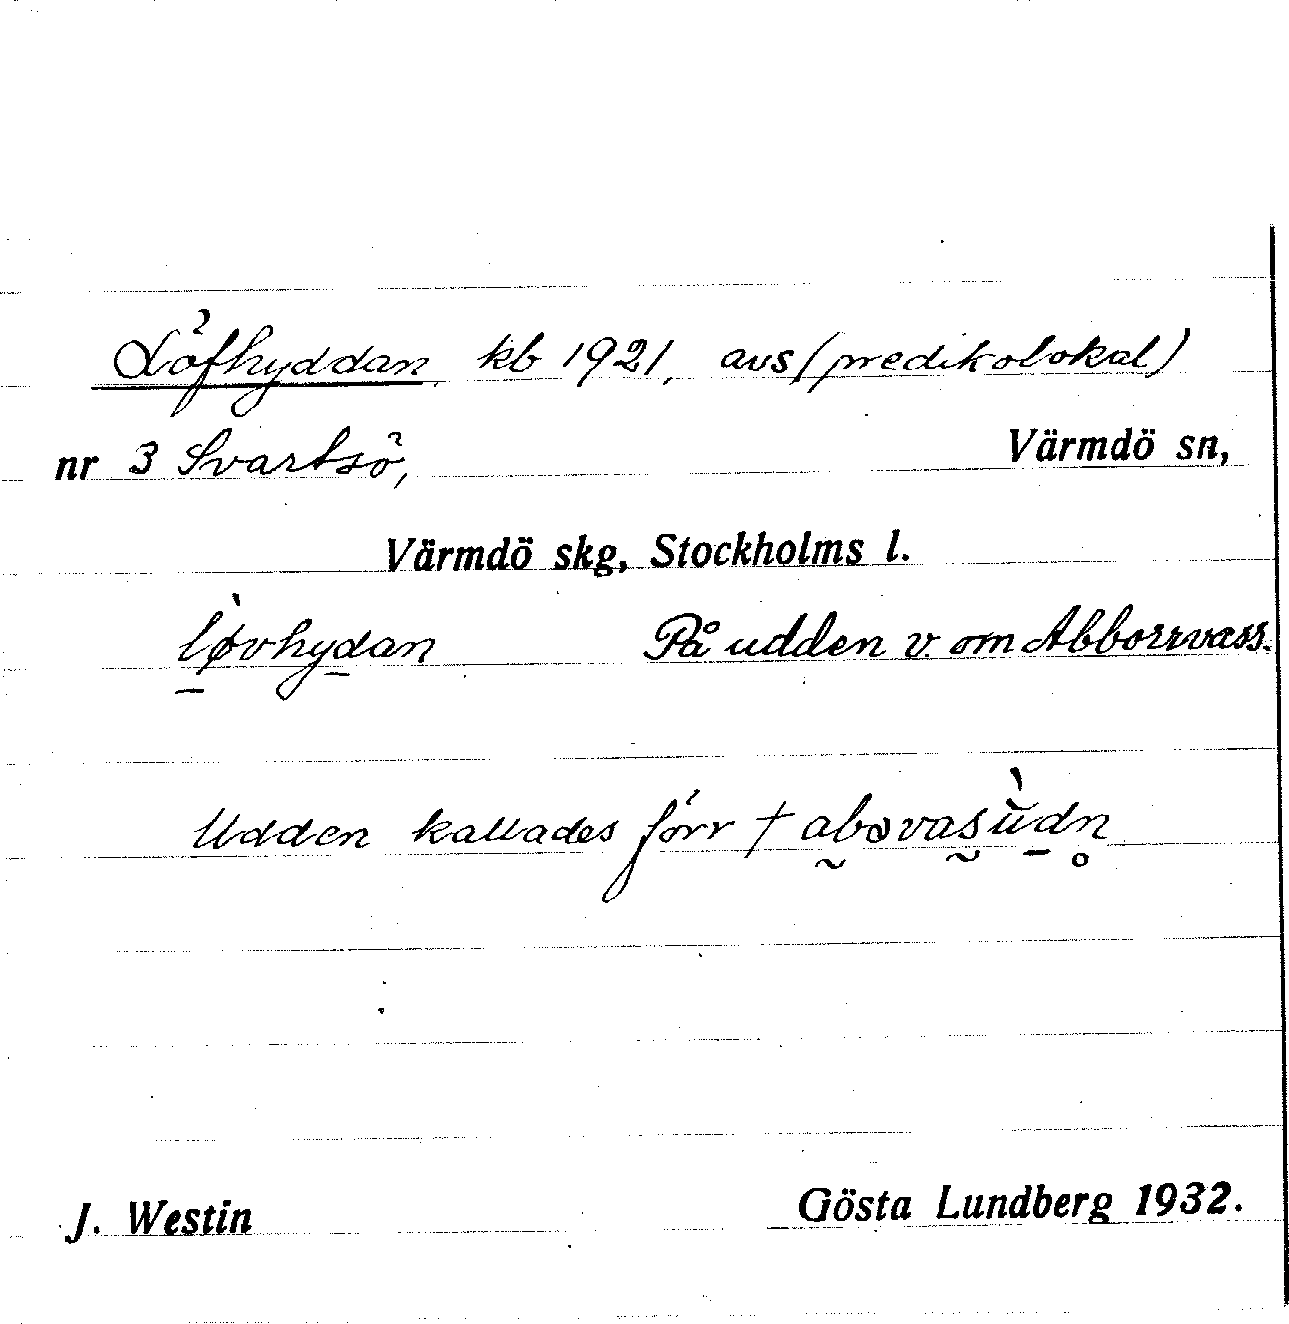 Löfhyddan kb 1921, avs (predikolokal)
nr 3 Svartsö, Värmdö sn,
Värmdö skg, Stockholms l.
lø̀vhydan På udden v. om Abborrvass.
Udden kallades förr † abɷvasùdn̥
J. Westin Gösta Lundberg 1932.